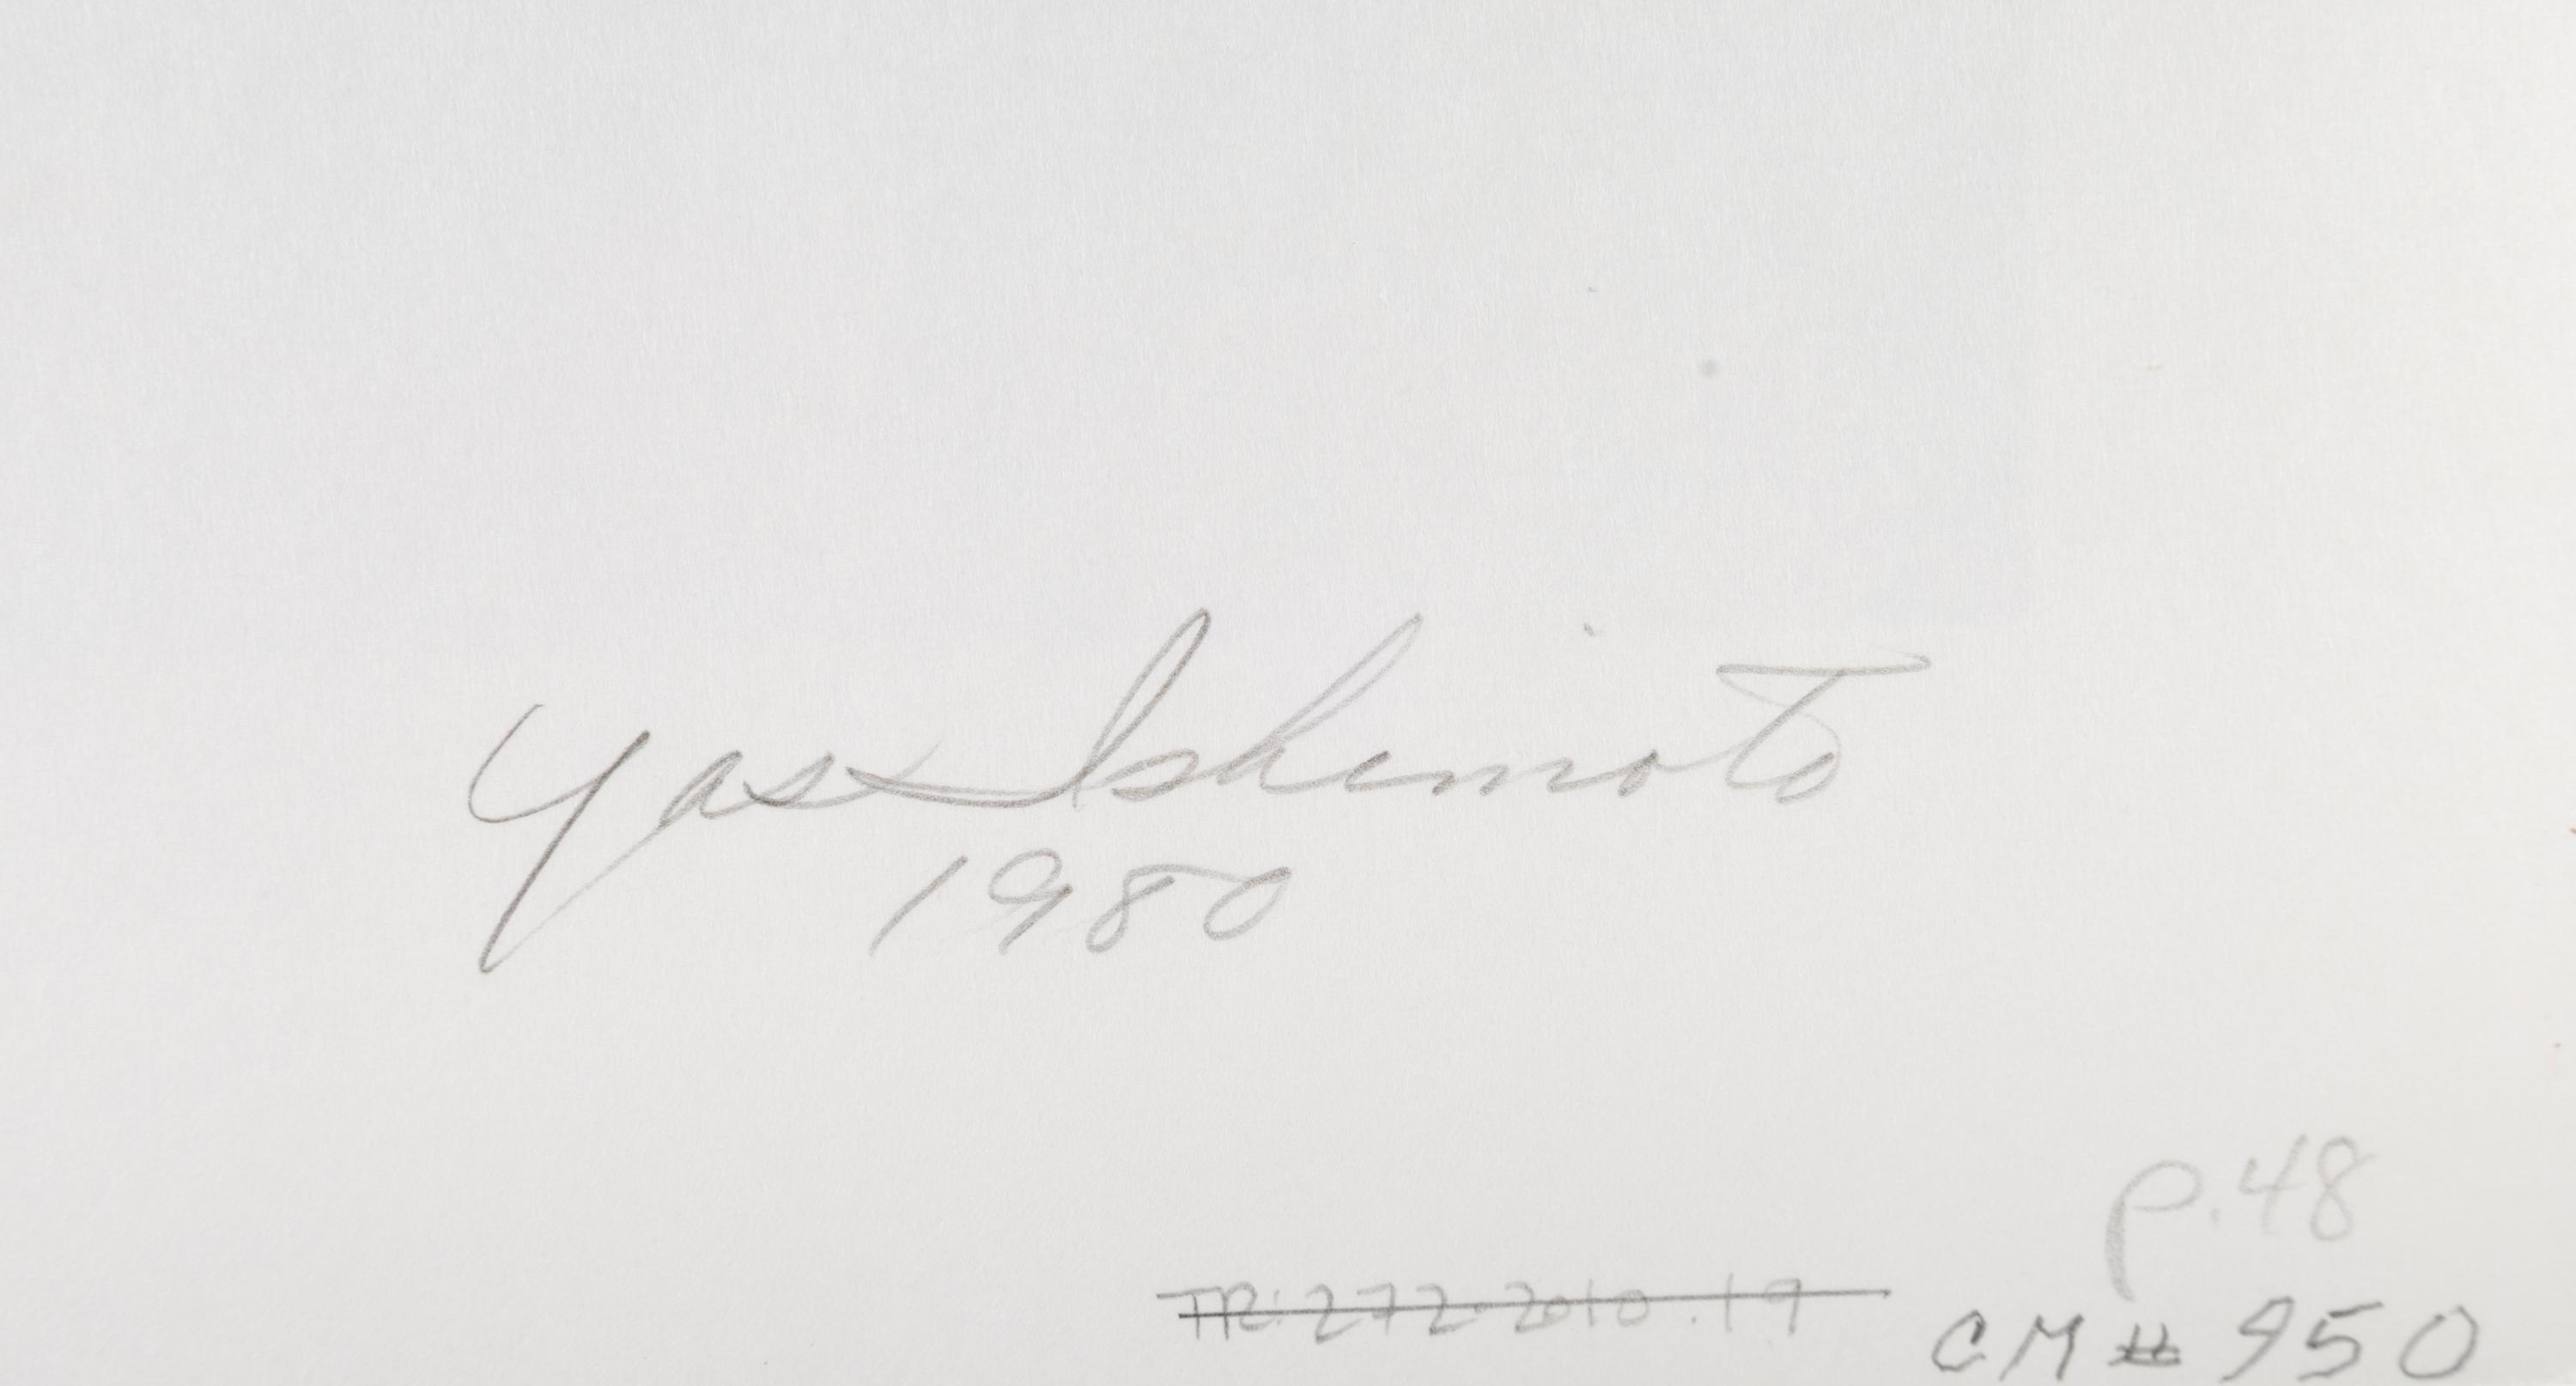 Yas Ishimoto
1980
p.48
TR: 272.2010.19
CM # 950